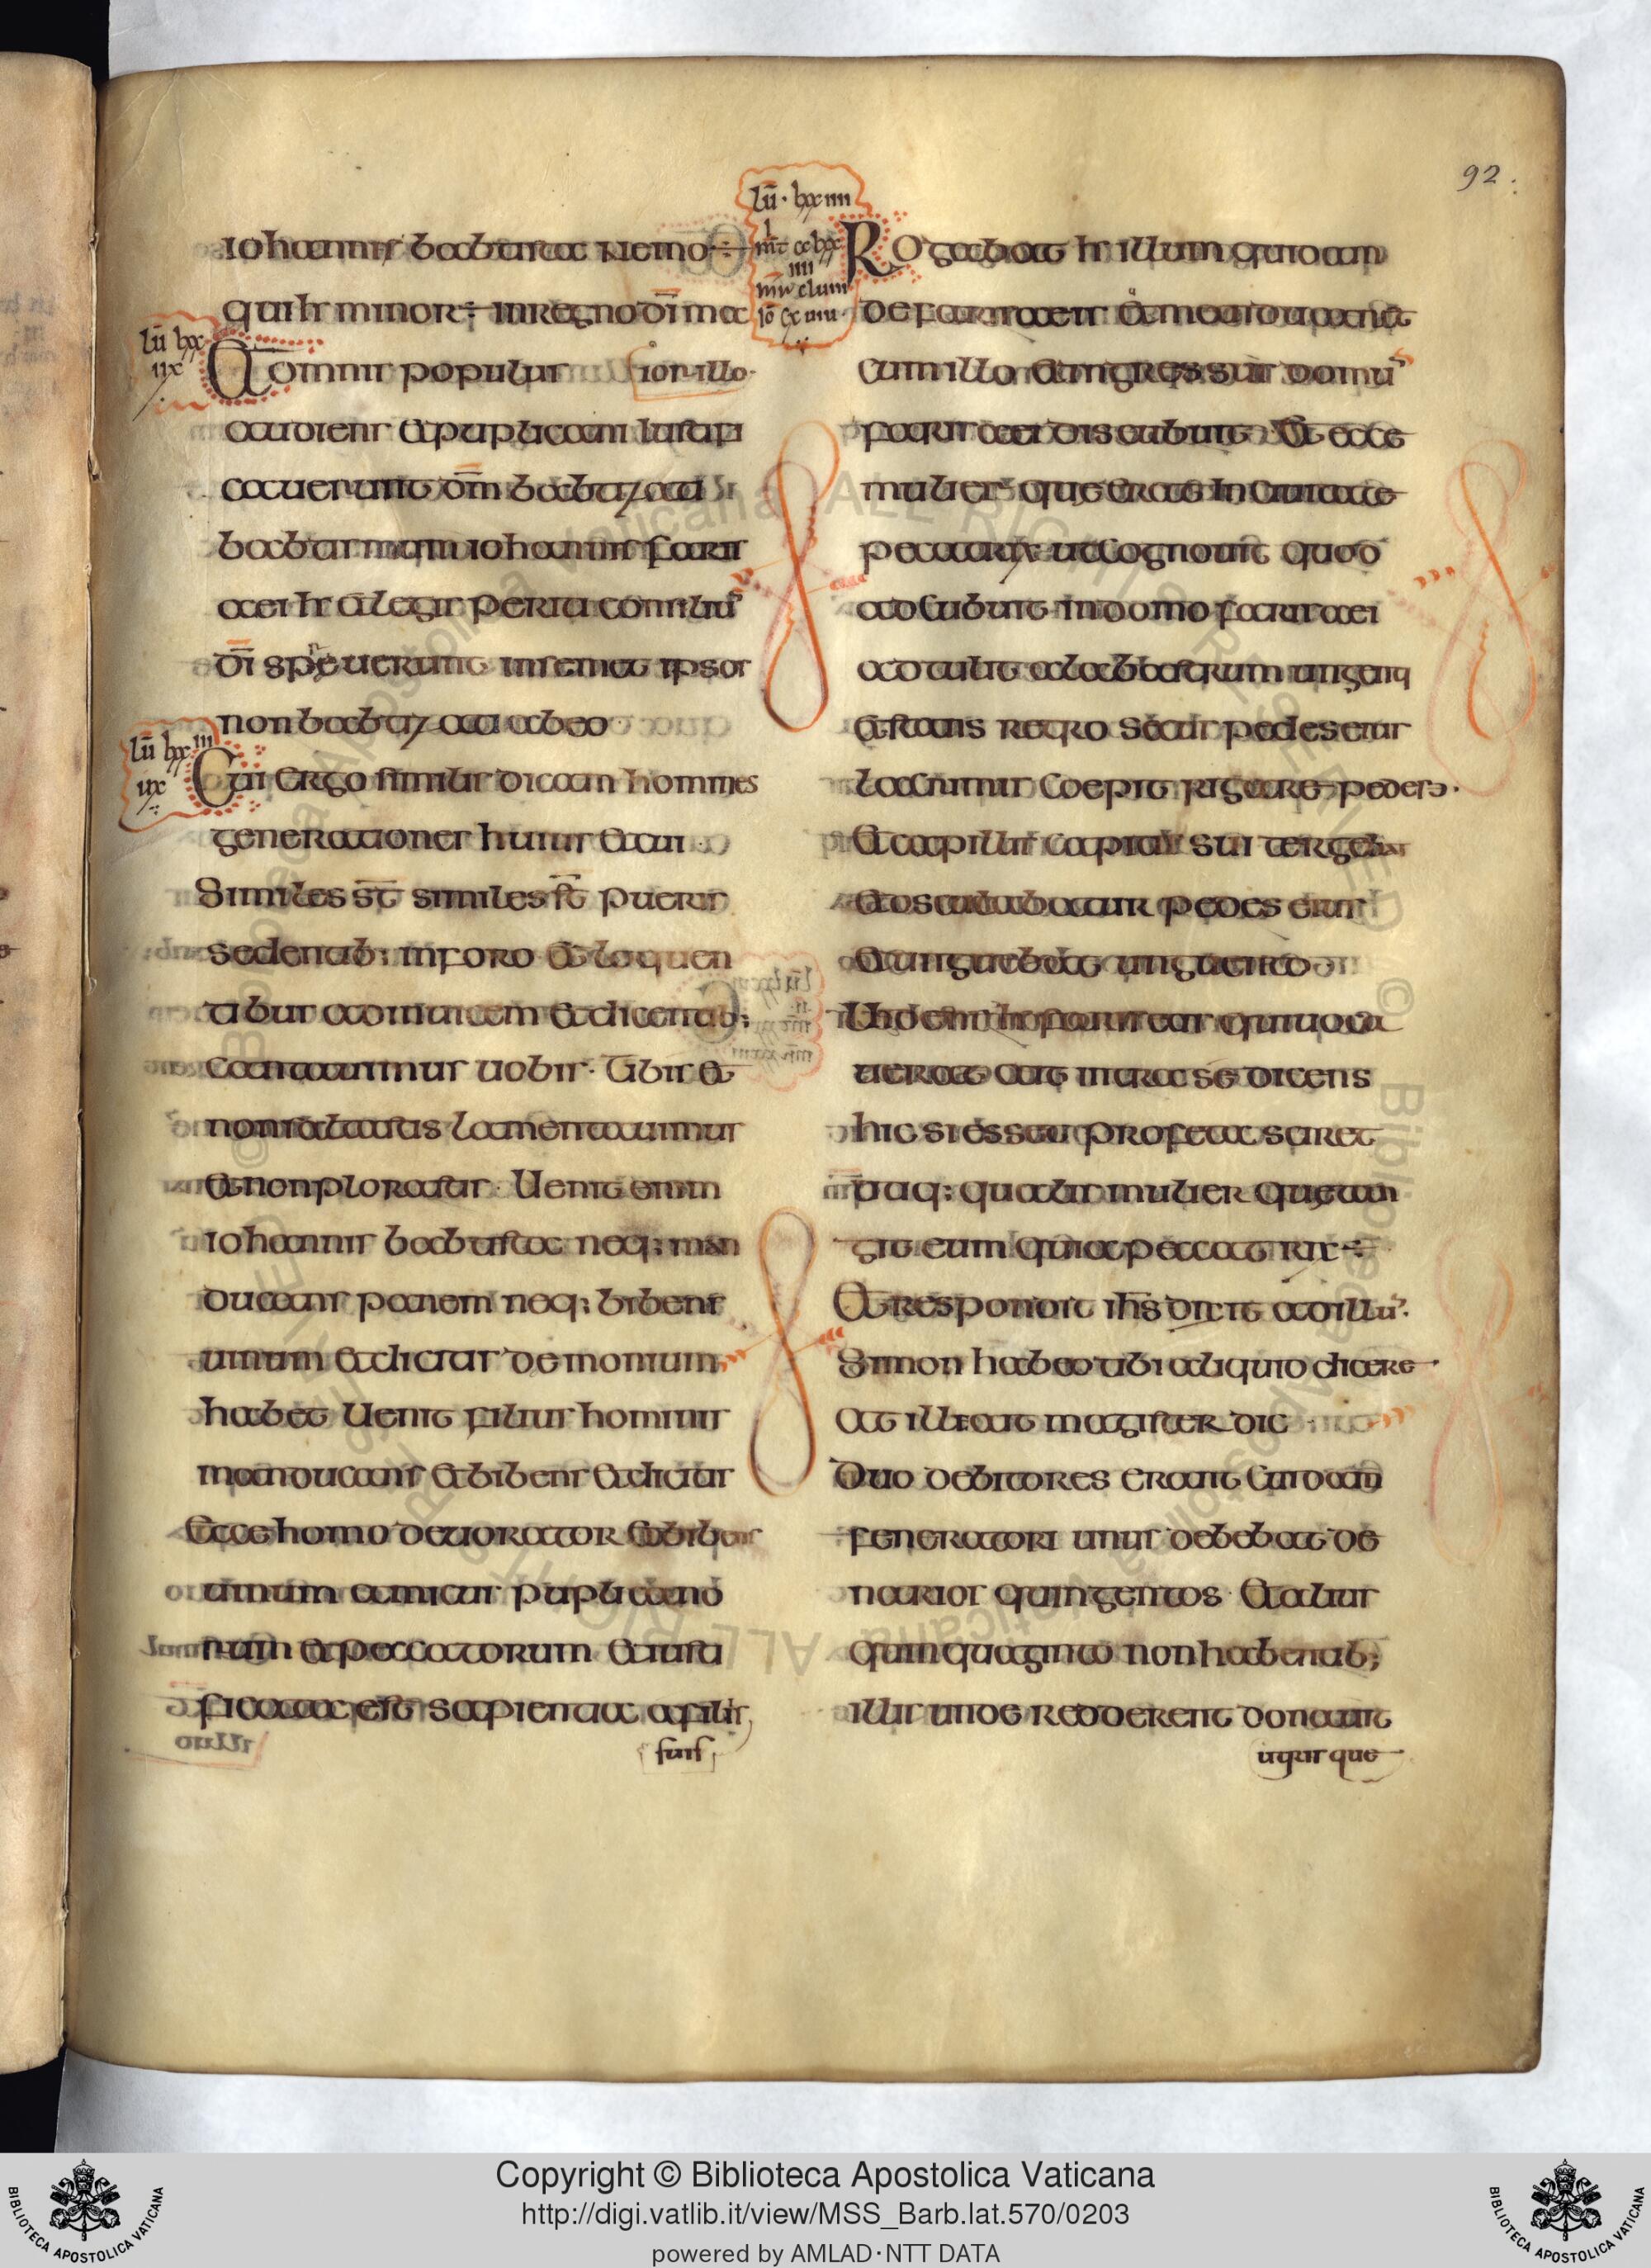 92.
iohannis babtista nemo
qui hr minor: in regno dī ma
ior illo.
Et omnis populus
audiens et puplicani iustifi
cauerunt dm̄ babtizati
babtismum iohannis fari
saei hr et legis periti consiliū
dī spreuerunt in semet ipsos
non babtizati ab eo
Cui ergo similis dicam homines
generationes huius et cui
Similes st̄ similes st̄ pueris
sedentib; in foro et loquen
tibus ad inuicem et dicentib;
cantauimus uobis tibis et
non saltastis lamentauimus
et non plorastis Uenit enim
iohannis babtista neq; man
ducans panem neq; bibens
uinum et dicitis demonium
habet Uenit filius hominis
manducans et bibens et dicitis
Ecce homo deuorator et bibens
uinum amicus puplicano
rum et peccatorum et iusti
ficata est sapientia a filis
suis
lū lxx
iix
lū lxxiii
ux
lū lxxiiii
Rogabat hr illum quidam
de farisaeis et manducaret
cum illo et ingressus domū
farisaei discubuit Et ecce
mulier que erat in ciuitate
peccatrix ut cognouit quod
adcubuit in domo farisaei
adtulit alabbastrum ungenti
et stans retro secus pedes eius
lacrimis coepit rigare pedes
et capillis capitis sui tergebat
et osculabatur pedes eius
et unguebat unguento
Uidens hr farisaeus qui uoca
uerat ait intra se dicens
hic si esset profeta sciret
utiq; qualis mulier que tan
git eum quia peccatrix
Et respondit ihs dixit ad illū.
Simon habeo tibi aliquid dicere
At ille ait magister dic
Duo debitores erant cuidam
feneratori unus debebat de
narios quingentos Et alius
quinquaginta non habentib;
illis unde redderent donauit
utrisque
Copyright © Biblioteca Apostolica Vaticana
http://digi.vatlib.it/view/MSS_Barb.lat.570/0203
powered by AMLAD·NTT DATA
BIBLIOTECA APOSTOLICA VATICANA
BIBLIOTECA APOSTOLICA VATICANA